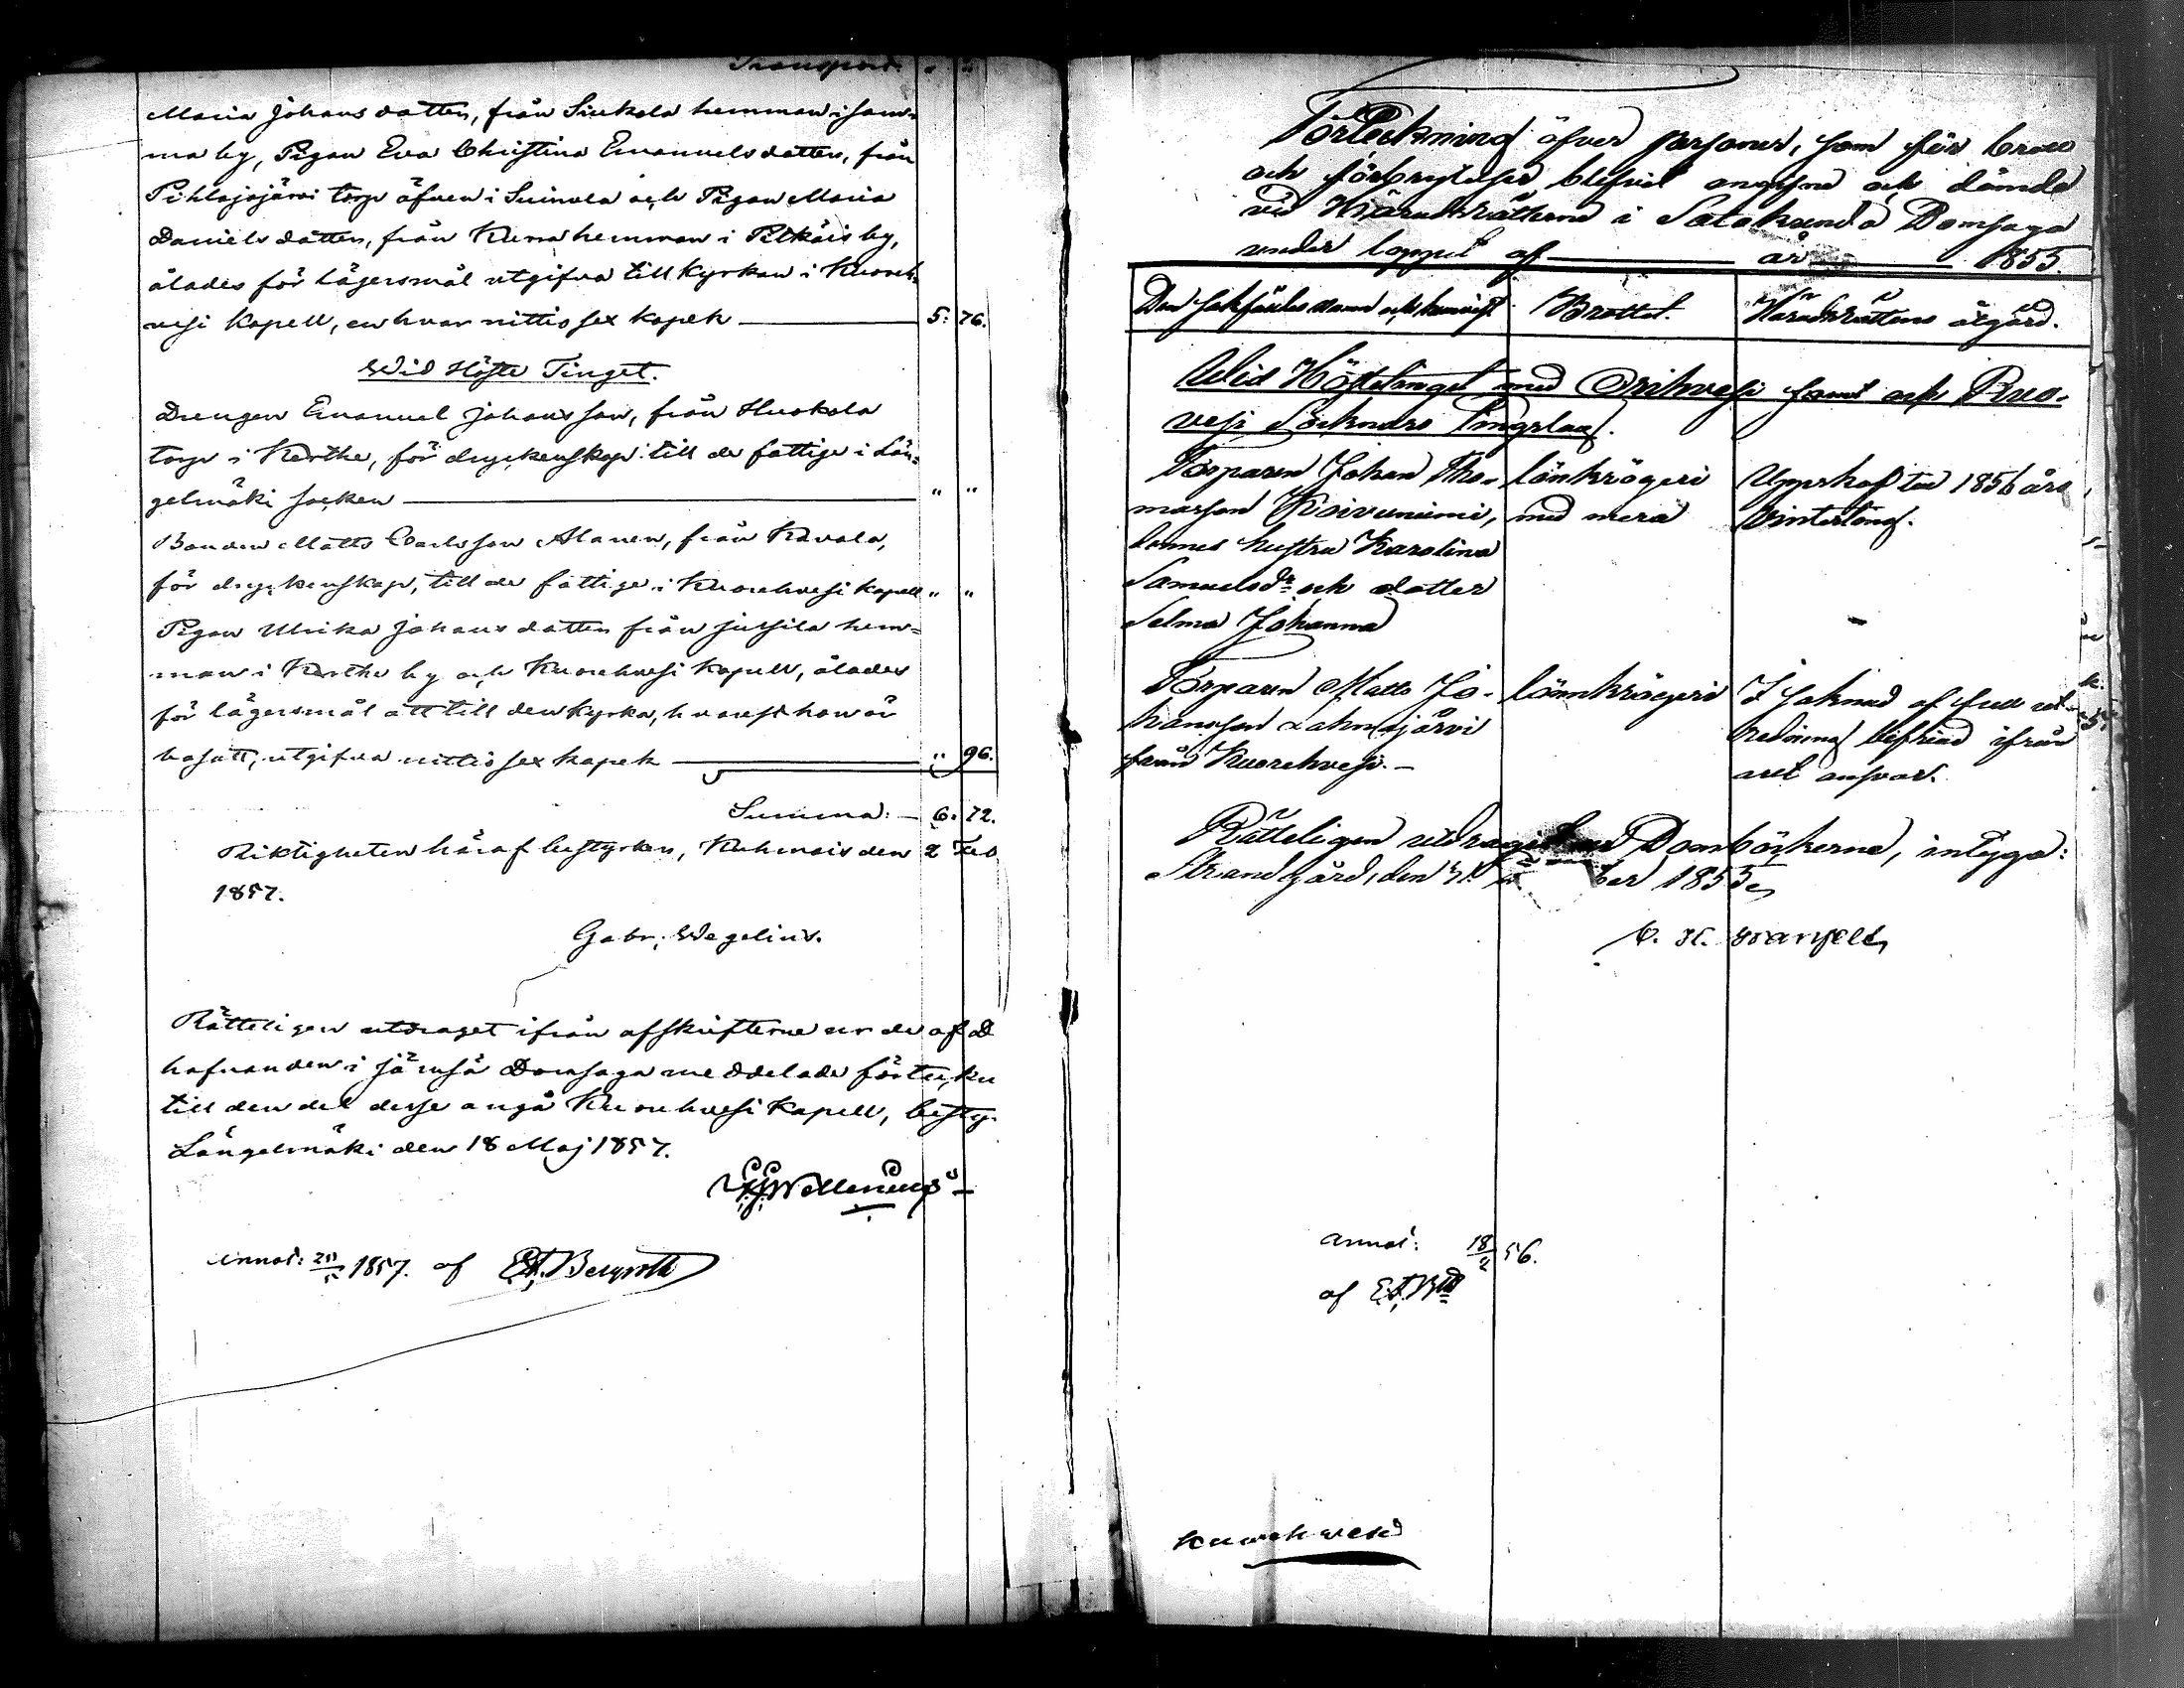 Transport. " "
Maria Johansdotter, från Siukola hemman i sam-
ma by, Pigan Eva Christina Emanuelsdotter, från
Pihlajajärvi torp äfven i Suinula och Pigan Maria
Danielsdotter, från Kurra hemman i Pitkäis by,
ålades för lägersmål utgifva till kyrkan i Kuoreh-
vesi Kapell, en hvar nittiosex kopek 5: 76.
Wid Höste Tinget.
Drengen Emanuel Johansson, från Huokola
torp i Kertke, för dryckenskap till de fattige i Län-
gelmäki socken " "
Bonden Matts Carlsson Alanen, från Kavala,
för dryckenskap, till de fattige i Kuorehvesi Kapell " "
Pigan Ulrika Johansdotter från Jussila hem-
man i Kertke by och Kuorehvesi Kapell, ålades
för lägersmål att till den kyrka, hvarest hon är
bosatt, utgifva nittiosex kopek " 96.
Summa: 6. 72.
Riktigheten häraf bestyrker, Kuhmois den 2 Feb
1857.
Gabr. Wegelius.
Rätteligen utdraget ifrån afskrifterne ur de af D
hafvanden i Jämsä Domsaga meddelade förteck
till den del desse angå Kuorehvesi Kapell, besty-
Längelmäki den 18 Maj 1857.
Annot: 1857. af E.A. Bergroth
Förteckning öfver personer, som för brott
och förbrytelser blifvit angifne och dömde
vid Häradsrätterne i Satakunda Domsaga
under loppet af år 1855.
Den sakfäldes namn och hemvist. Brottet. Häradsrättens åtgärd.
Wid Hösttinget med Orihvesi samt och Ruo-
vesi Socknars Tingslag.
Torparen Johan Tho- lönkrögeri Uppskof till 1856 års
masson Koivuniemi, med mera Vinterting.
dennes hustru Karolina
Samuelsdr och dotter
Selma Johanna
Torparen Matts Jo- lönnkrögeri I saknad af full ut-
hansson Lahnajärvi redning befriad ifrån
från Kuorehvesi. allt ansvar.
Rätteligen utdraget Domböckerne, intyga:
Strandgård, den 31 ber 1855
annot: 18 56.
af E.A. Bth
Kuorehvesi